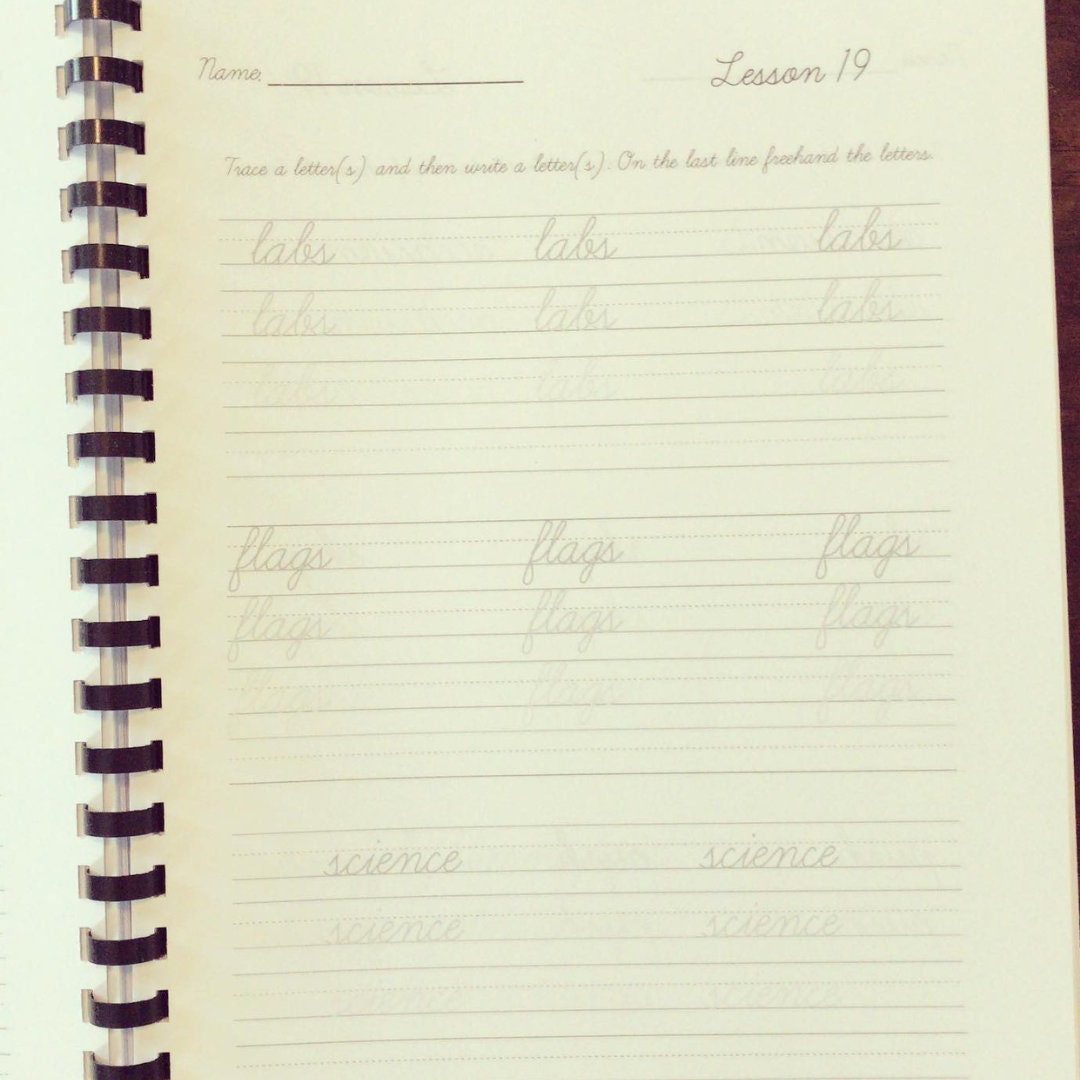 Name: Lesson 19
Trace a letter(s) and then write a letter(s). On the last line freehand the letters.
labs labs labs
labs labs labs
labs labs labs
flags flags flags
flags flags flags
flags flags flags
science science
science science
science science